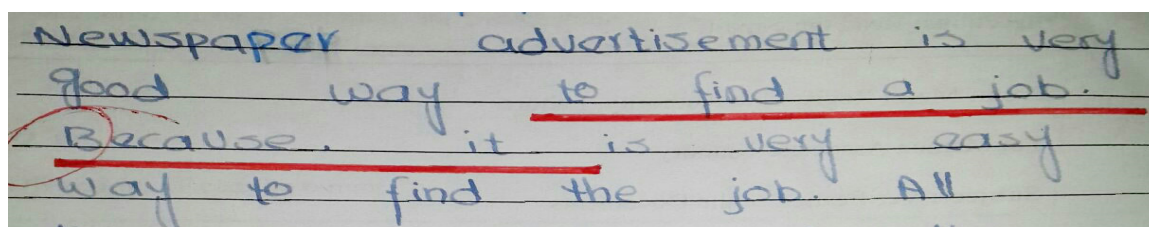 Newspaper advertisement is very
good way to find a job.
Because, it is very easy
way to find the job. All